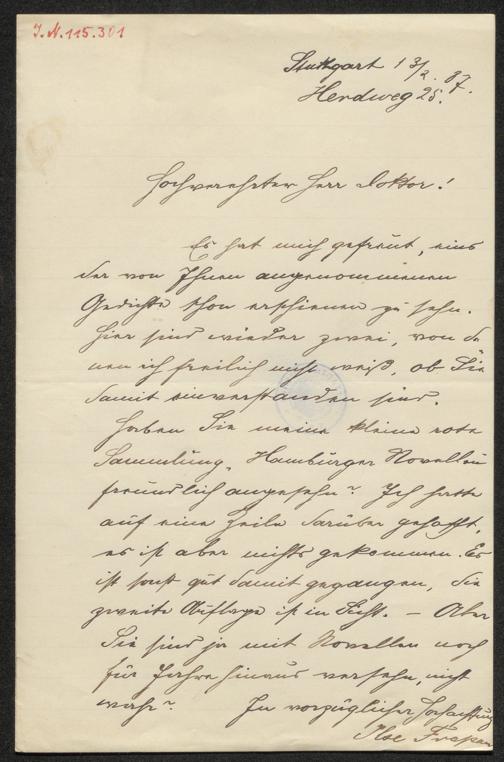 I.N. 115.301
Stuttgart 13/2. 87.
Herdweg 25.
Hochverehrter Herr Doktor!
Es hat mich gefreut, eins
der von Ihnen angenommenen
Gedichte schon erschienen zu sehn.
Hier sind wieder zwei, von de
nen ich freilich nicht weiß, ob Sie
damit einverstanden sind.
Haben Sie meine kleine rote
Sammlung „Hamburger Novellen
freundlich angesehn? Ich hatte
auf eine Zeile darüber gehofft,
es ist aber nichts gekommen. Es
ist sonst gut damit gegangen, die
zweite Auflage ist in Sicht. – Aber
Sie sind ja mit Novellen noch
für Jahre hinaus versehn, nicht
wahr? In vorzüglicher Hochachtung
Ilse Frapan